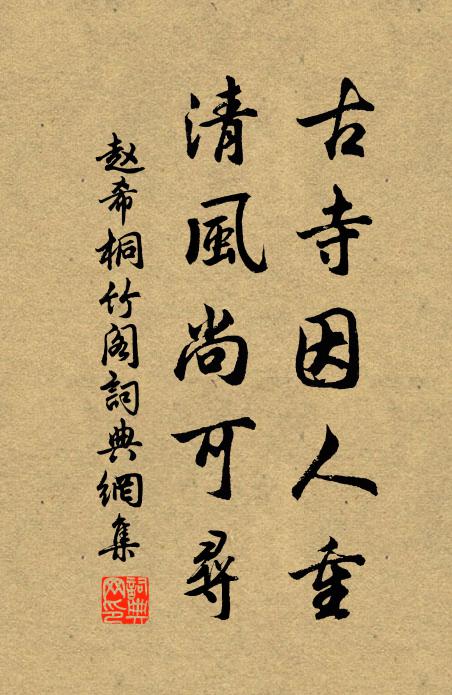 古寺因人重
清風尚可尋
赵希桐竹阁詞典網集
詞典网印